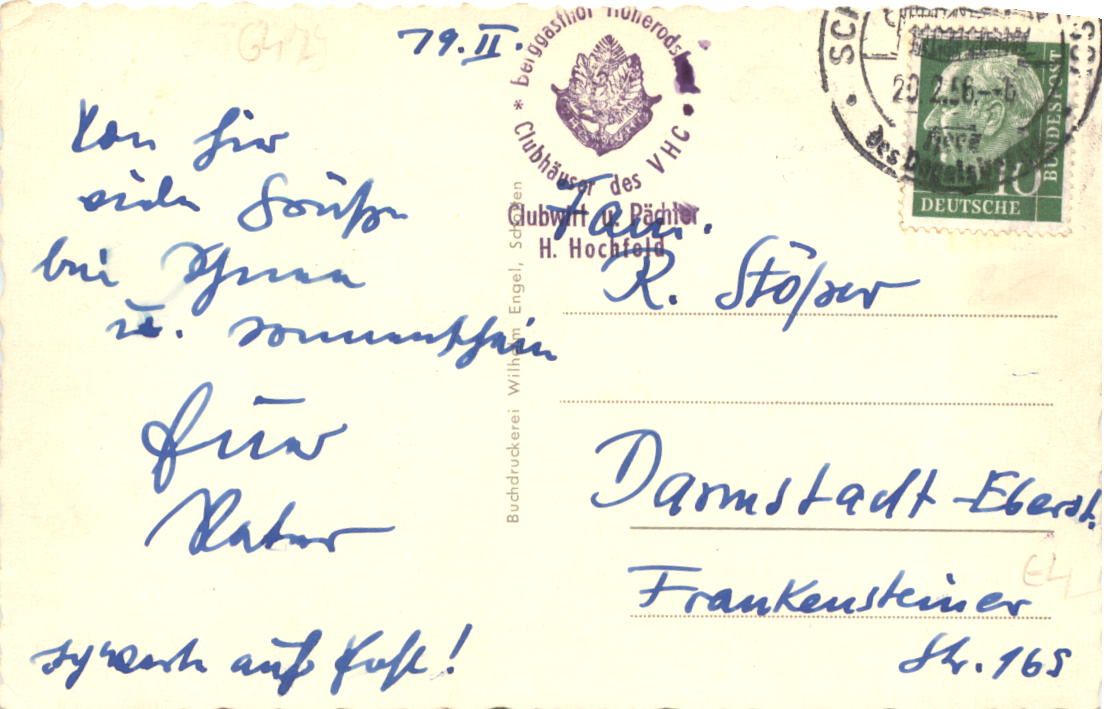 19.II.
Von hier
viele Grüße
bei Schnee
u. Sonnenschein
Euer
Vater
auf
* Berggasthof
Clubhäuser des VHC
Clubwirt u. Pächter
H. Hochfeld
Buchdruckerei Wilhelm Engel, Schotten
20.2.56.--6
10
DEUTSCHE
BUNDESPOST
Fam.
R. Stößer
Darmstadt-Eberst.
Frankensteiner
Str. 165